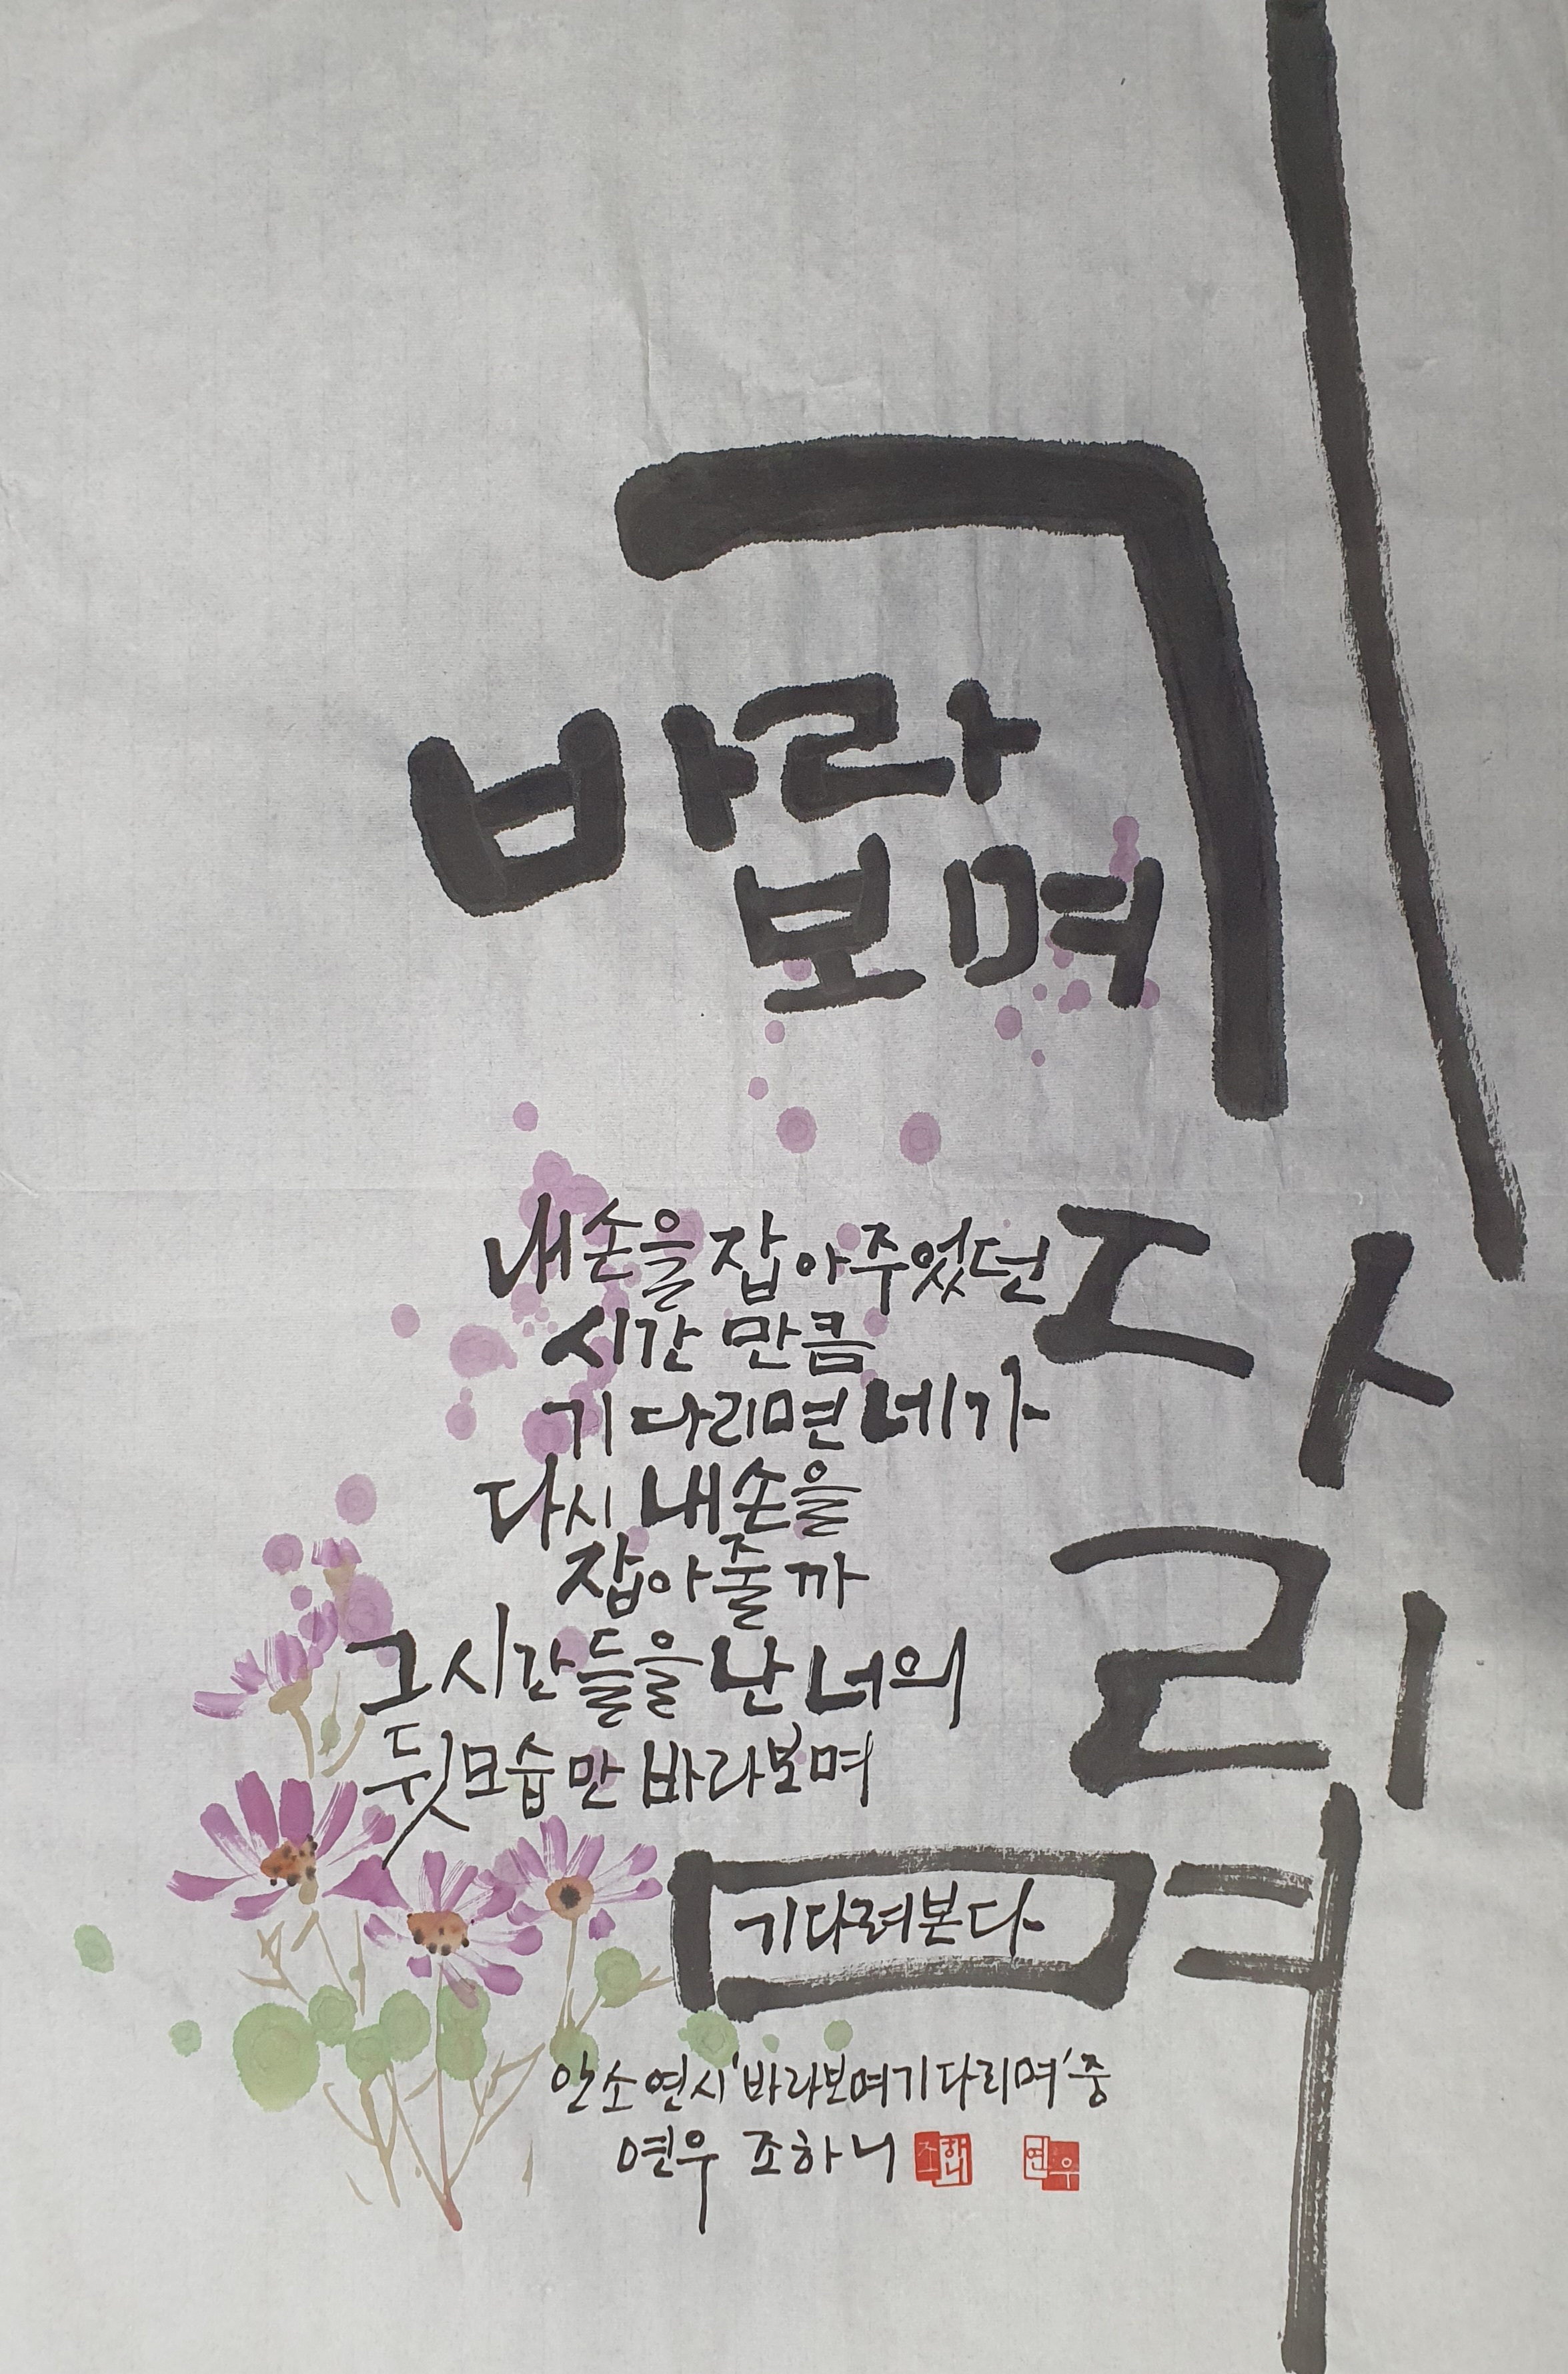 바라
보며
기다리며
내손을 잡아주었던
시간 만큼
기다리면 네가
다시 내손을
잡아줄까
그 시간들을 난 너의
뒷모습만 바라보며
기다려본다
안소연시 '바라보며기다리며' 중
연우 조하니
조하니
연우